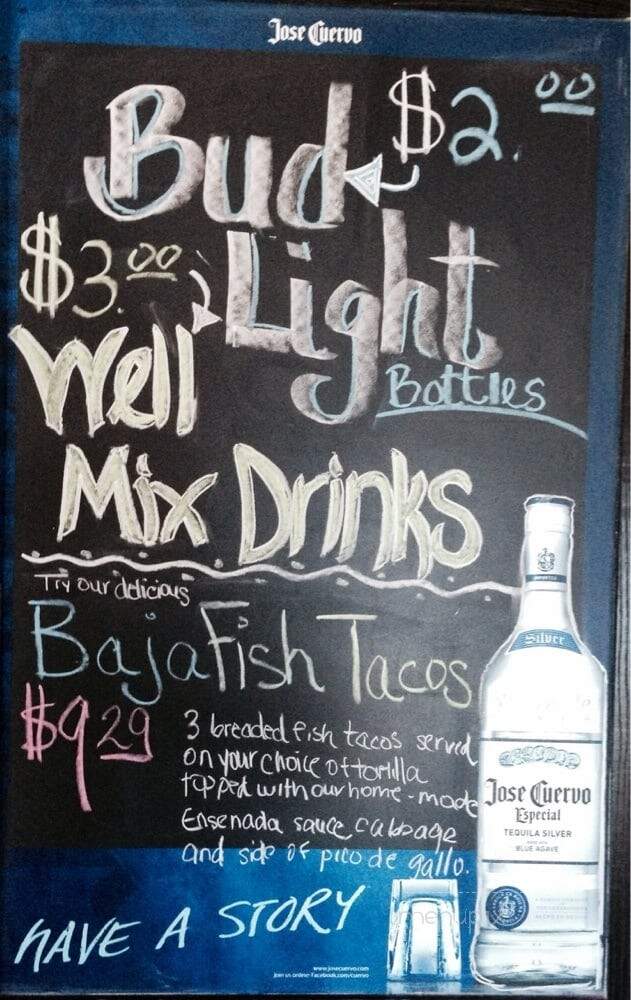 Jose Cuervo
Bud $2.00
$3.00 Light
Well Bottles
Mix Drinks
Try our delicious
Baja Fish Tacos
$9.29
3 breaded fish tacos served
on your choice of tortilla
topped with our home-made
Ensenada sauce, cabbage
and side of pico de gallo.
Silver
Jose Cuervo
Especial
TEQUILA SILVER
MADE WITH
BLUE AGAVE
HAVE A STORY
www.josecuervo.com
Join us online: Facebook.com/cuervo